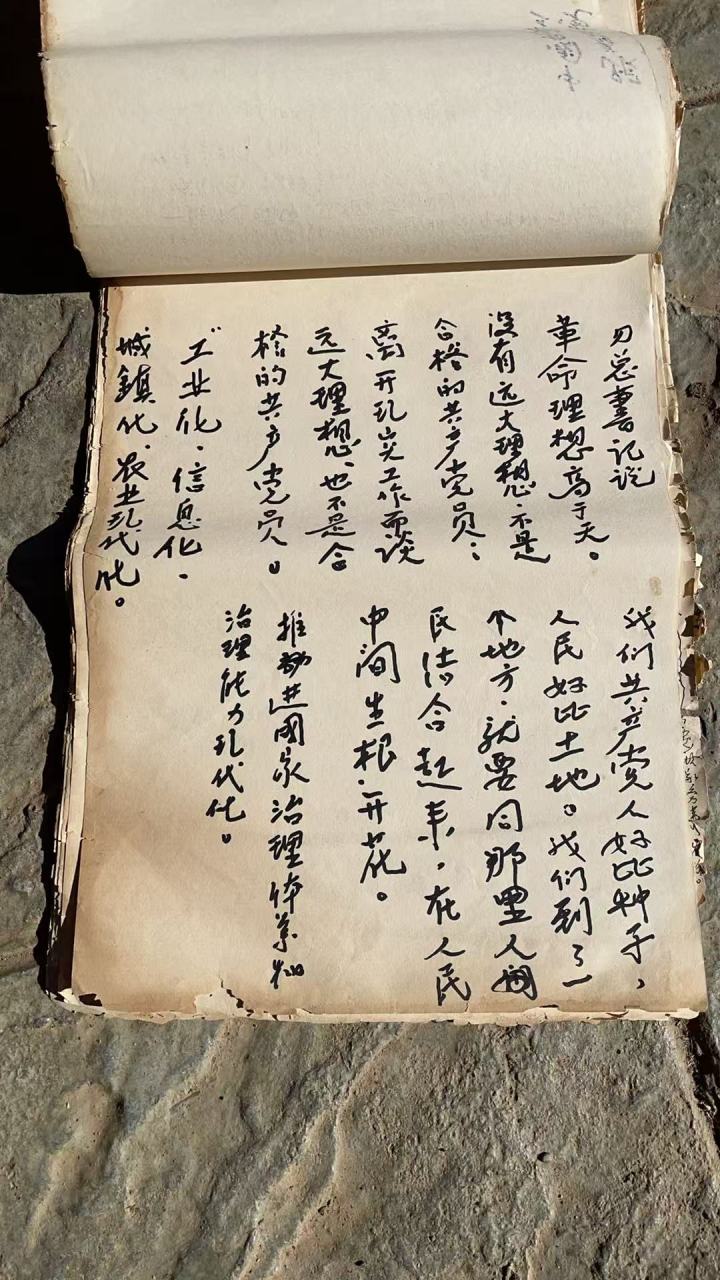 习总書记说
革命理想高于天。
没有远大理想、不是
合格的共产党员;
离开现实工作而谈
远大理想、也不是合
格的共产党员。
"工业化、信息化、
城鎮化、农业现代化。
我们共产党人好比种子,
人民好比土地。我们到了一
个地方、就要同那里人
民结合起来,在人民
中间生根、开花。
推动进國家治理体系和
治理能力现代化。